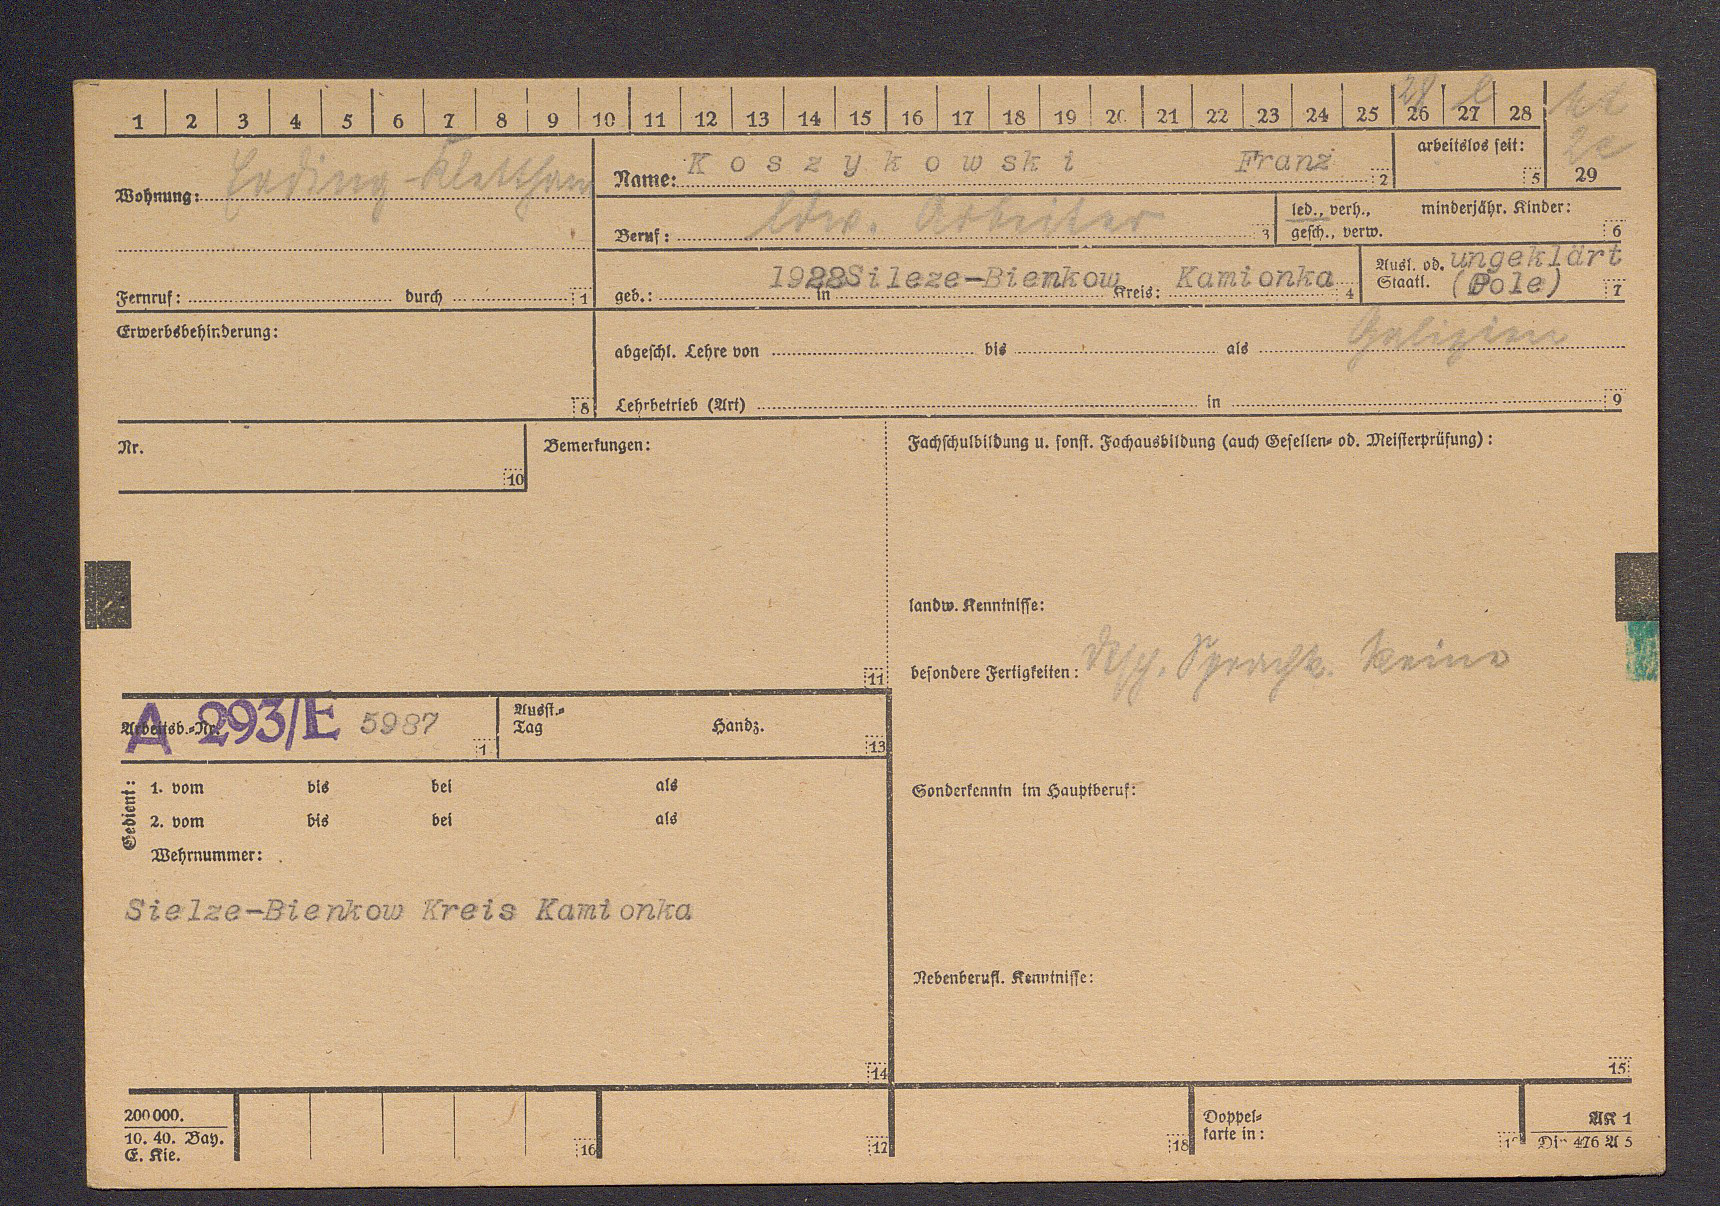 1 2 3 4 5 6 7 8 9 10 11 12 13 14 15 16 17 18 19 20 21 22 23 24 25 26 27 28
29
Wohnung: Erding Klettham
Fernruf: durch 1
Name: Koszykowski Franz 2
arbeitslos seit: 5
Beruf: ldw. Arbeiter 3
led., verh., minderjähr. Kinder:
gesch., verw. 6
geb.: 1928 in Sileze-Bienkow Kreis: Kamionka 4
Ausl. od. ungeklärt
Staatl. (Pole) 7
Erwerbsbehinderung: 8
Galizien
abgeschl. Lehre von bis als
Lehrbetrieb (Art) in 9
Nr. 10
Bemerkungen: 11
Fachschulbildung u. sonst. Fachausbildung (auch Gesellen- od. Meisterprüfung):
landw. Kenntnisse:
besondere Fertigkeiten: Dtsch. Sprachk. keine
Sonderkenntn im Hauptberuf:
Nebenberufl. Kenntnisse:
15
Arbeitsb.-Nr. A 293/E 5987 1
Ausst.-
Tag Handz. 13
Gedient:
1. vom bis bei als
2. vom bis bei als
Wehrnummer:
Sielze-Bienkow Kreis Kamionka
14
200000.
10. 40. Bay.
E. Kie.
16 17 18
Doppel-
karte in:
AK 1
Din 476 A 5